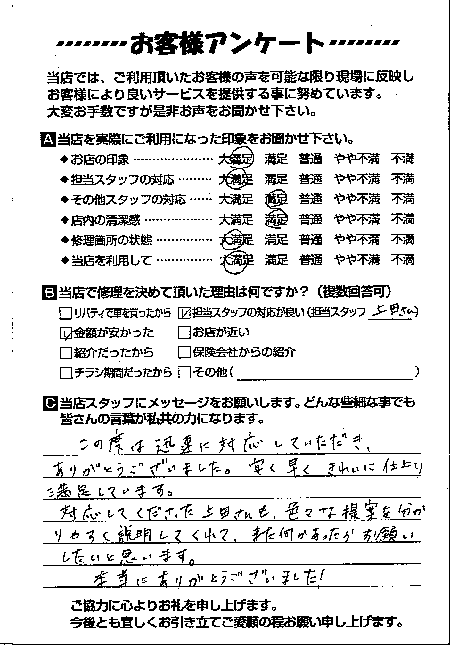 お客様アンケート
当店では、ご利用頂いたお客様の声を可能な限り現場に反映し
お客様により良いサービスを提供する事に努めています。
大変お手数ですが是非お声をお聞かせ下さい。
A 当店を実際にご利用になった印象をお聞かせ下さい。
◆お店の印象 大満足 満足 普通 やや不満 不満
◆担当スタッフの対応 大満足 満足 普通 やや不満 不満
◆その他スタッフの対応 大満足 満足 普通 やや不満 不満
◆店内の清潔感 大満足 満足 普通 やや不満 不満
◆修理箇所の状態 大満足 満足 普通 やや不満 不満
◆当店を利用して 大満足 満足 普通 やや不満 不満
B 当店で修理を決めて頂いた理由は何ですか？（複数回答可）
□リバティで車を買ったから ☑担当スタッフの対応が良い(担当スタッフ 上田さん)
☑金額が安かった □お店が近い
□紹介だったから □保険会社からの紹介
□チラシ期間だったから □その他( )
C 当店スタッフにメッセージをお願いします。どんな些細な事でも
皆さんの言葉が私共の力になります。
この度は迅速に対応していただき、
ありがとうございました。安く早くきれいに仕上り
満足しています。
対応してくださった上田さんも、色々な提案を分か
りやすく説明してくれて、また何かあったらお願い
したいと思います。
本当にありがとうございました!
ご協力に心よりお礼を申し上げます。
今後とも宜しくお引き立てご愛顧の程お願い申し上げます。